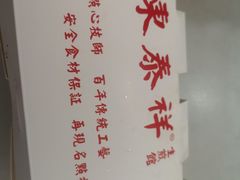 東泰祥®
生煎館
點心技師 百年傳統工藝
安全食材保証 再現名點